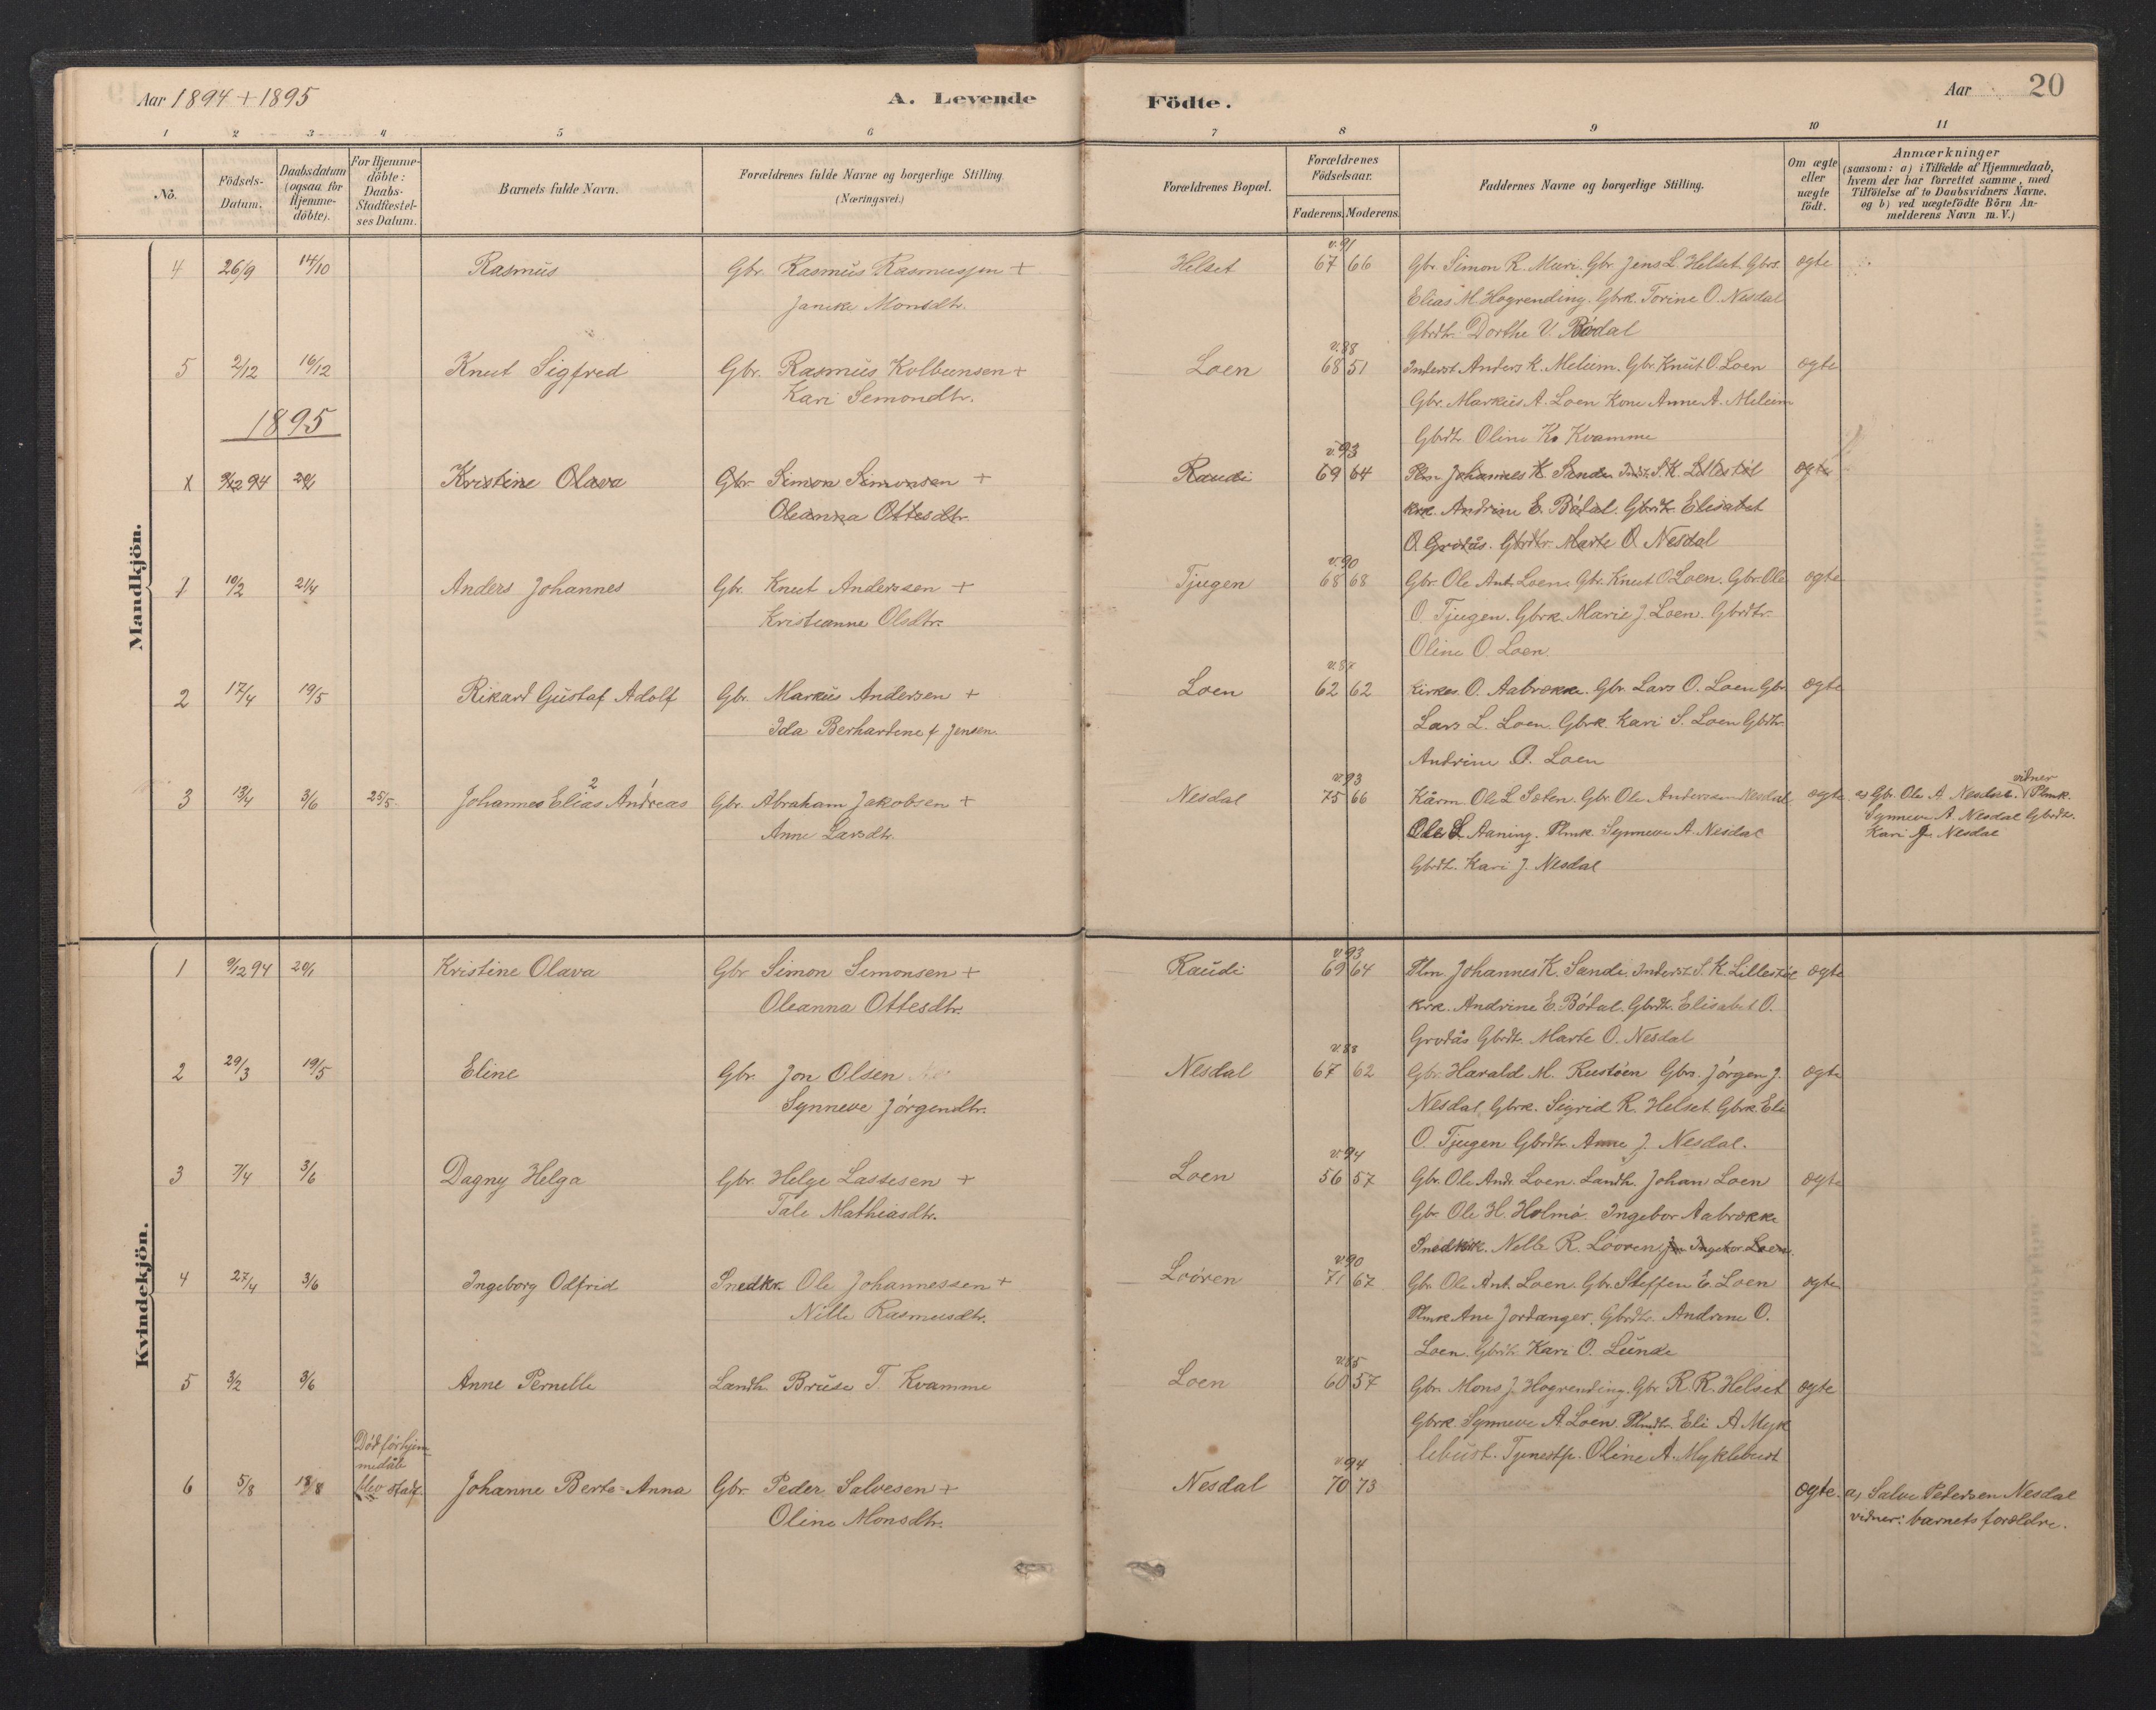 Aar 1894 + 1895
A. Levende
Födte.
Aar
20
1 2 3 4 5 6 7 8 9 10 11
No.
Födsels-Datum.
Daabsdatum (ogsaa for Hjemme-döbte).
For Hjemme-döbte: Daabs-Stadfæstel-ses Datum.
Barnets fulde Navn.
Forældrenes fulde Navne og borgerlige Stilling. (Næringsvei.)
Forældrenes Bopæl.
Forældrenes Födselsaar.
Faderens. Moderens.
Faddernes Navne og borgerlige Stilling.
Om ægte eller uægte födt.
Anmærkninger
(saasom: a) i Tilfælde af Hjemmedaab,
hvem der har forrettet samme, med
Tilföielse af to Daabsvidners Navne.
og b) ved uægtefödte Börn An-
melderens Navn m. V.)
Mandkjön.
v. 91
4 26/9 14/10 Rasmus Gbr. Rasmus Rasmussen + Helset 67 66 Gbr. Simon R. Muri. Gbr. Jens L. Helset. Gbrs. ægte
Janike Monsdtr. Elias M. Hogrending. Gbrk. Torine O. Nesdal
Gbrdtr. Dorthe V. Bødal
v. 88
5 2/12 16/12 Knut Sigfred Gbr. Rasmus Kolbeinsen + Loen 68 51 Inderst. Anders K. Melum. Gbr. Knut O. Loen ægte
Kari Semondtr. Gbr. Markus A. Loen Kone Anne A. Melum
1895
Gbrdtr. Oline K. Kvamme
v. 93
1 9/12 94 20/1 Kristine Olava Gbr Simon Simonsen + Raudi 69 64 Plm Johannes K Sande Indst. S. K. Lillestøl ægte
Oleanna Ottesdtr. krk. Andrine E. Bødal. Gbrdtr. Elisabet
O. Grodås. Gbrdtr. Marte O. Nesdal
v. 90
1 10/2 21/4 Anders Johannes Gbr. Knut Anderssen + Tjugen 68 68 Gbr. Ole Ant. Loen. Gbr. Knut O Loen. Gbr. Ole ægte
Kristianne Olsdtr. O. Tjugen. Gbrk. Marie J. Loen. Gbrdtr.
Oline O. Loen.
2 17/4 19/5 Rikard Gustaf Adolf Gbr. Markus Andersen + Loen 62 62 Kirkes. O. Aabrekke. Gbr. Lars O. Loen Gbr. ægte
Ida Berhardine f Jensen Lars L. Loen. Gbrk. Kari S. Loen Gbdtr.
Andrine O. Loen
v. 93
3 13/4 3/6 25/5 Johannes Elias 2 Andreas 1 Gbr. Abraham Jakobsen + Nesdal 75 66 Kårm. Ole L Sæten. Gbr. Ole Anderssen Nesdal ægte a) Gbr. Ole A Nesdal. vidner Plmk.
Anne Larsdtr. Ole L. Aaning. Plmk. Synneve A. Nesdal Synneve A. Nesdal Gbrdtr.
Gbrdtr. Kari J. Nesdal Kari J. Nesdal
Kvindekjön.
v. 93
1 9/12 94 20/1 Kristine Olava Gbr Simon Simonsen + Raudi 69 64 Plm. Johannes K. Sande. Inderst. S. K. Lillestøl ægte
Oleanna Ottesdtr. krk. Andrine E. Bødal. Gbrdtr. Elisabet O.
Grodås Gbrdtr. Marte O. Nesdal
v. 88
2 29/3 19/5 Eline Gbr. Jon Olsen Nesdal 67 62 Gbr. Harald M. Rustøen Gbrs. Jørgen J. ægte
Synneve Jørgendtr. Nesdal. Gbrk. Sigrid R. Helset. Gbrk. Eli
O. Tjugen Gbrdtr. Anne J. Nesdal.
v. 94
3 7/4 3/6 Dagny Helga Gbr. Helge Lassesen + Loen 56 57 Gbr. Ole Andr. Loen. Landh. Johan Loen ægte
Tale Mathiasdtr. Gbr. Ole H. Holmø. Ingebor Aabrekke
Snedkk. Nille R. Looren Ingebor Loen.
v. 90
4 27/4 3/6 Ingeborg Odfrid Snedkr. Ole Johannessen + Loøren 71 67 Gbr. Ole Ant. Loen. Gbr. Steffen E. Loen ægte
Nille Rasmusdtr. Plmk Ane Jordanger. Gbrdtr. Andrine O.
Loen. Gbrdtr. Kari O. Lunde
v. 85
5 3/2 3/6 Anne Pernille Landh. Bruse T. Kvamme Loen 60 57 Gbr. Mons J. Hogrending. Gbr R. R. Helset ægte
Gbrk. Synneve A. Loen. Plmdtr. Eli A Myk
lebust. Tjenestp. Oline A. Myklebust
Død før hjem
medåb
blev stadf.
v. 94
6 5/8 18/8 Johanne Berte Anna Gbr. Peder Salvesen + Nesdal 70 73 ægte. a) Salve Pedersen Nesdal
Oline Monsdtr. vidner: barnets forældre.